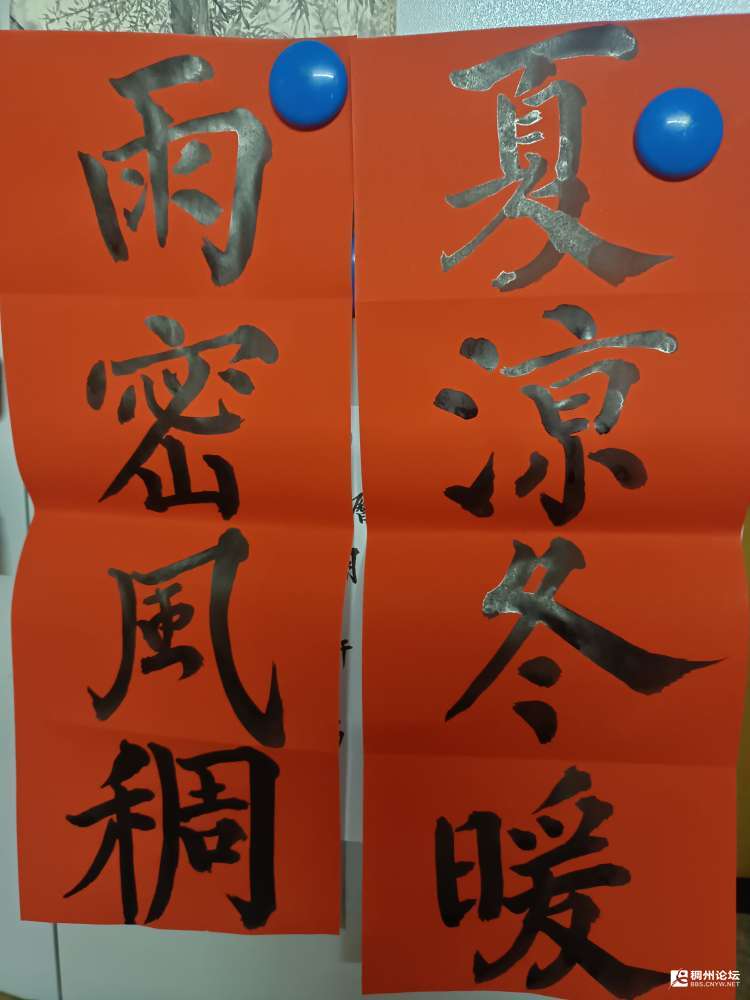 夏涼冬暖
雨密風稠
稠州论坛
BBS.CNYW.NET